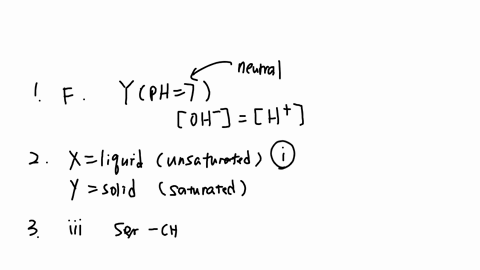 neutral
1. F. Y(PH=7)
[OH⁻] = [H⁺]
2. X=liquid (unsaturated) i
Y=solid (saturated)
3. iii Ser -CH